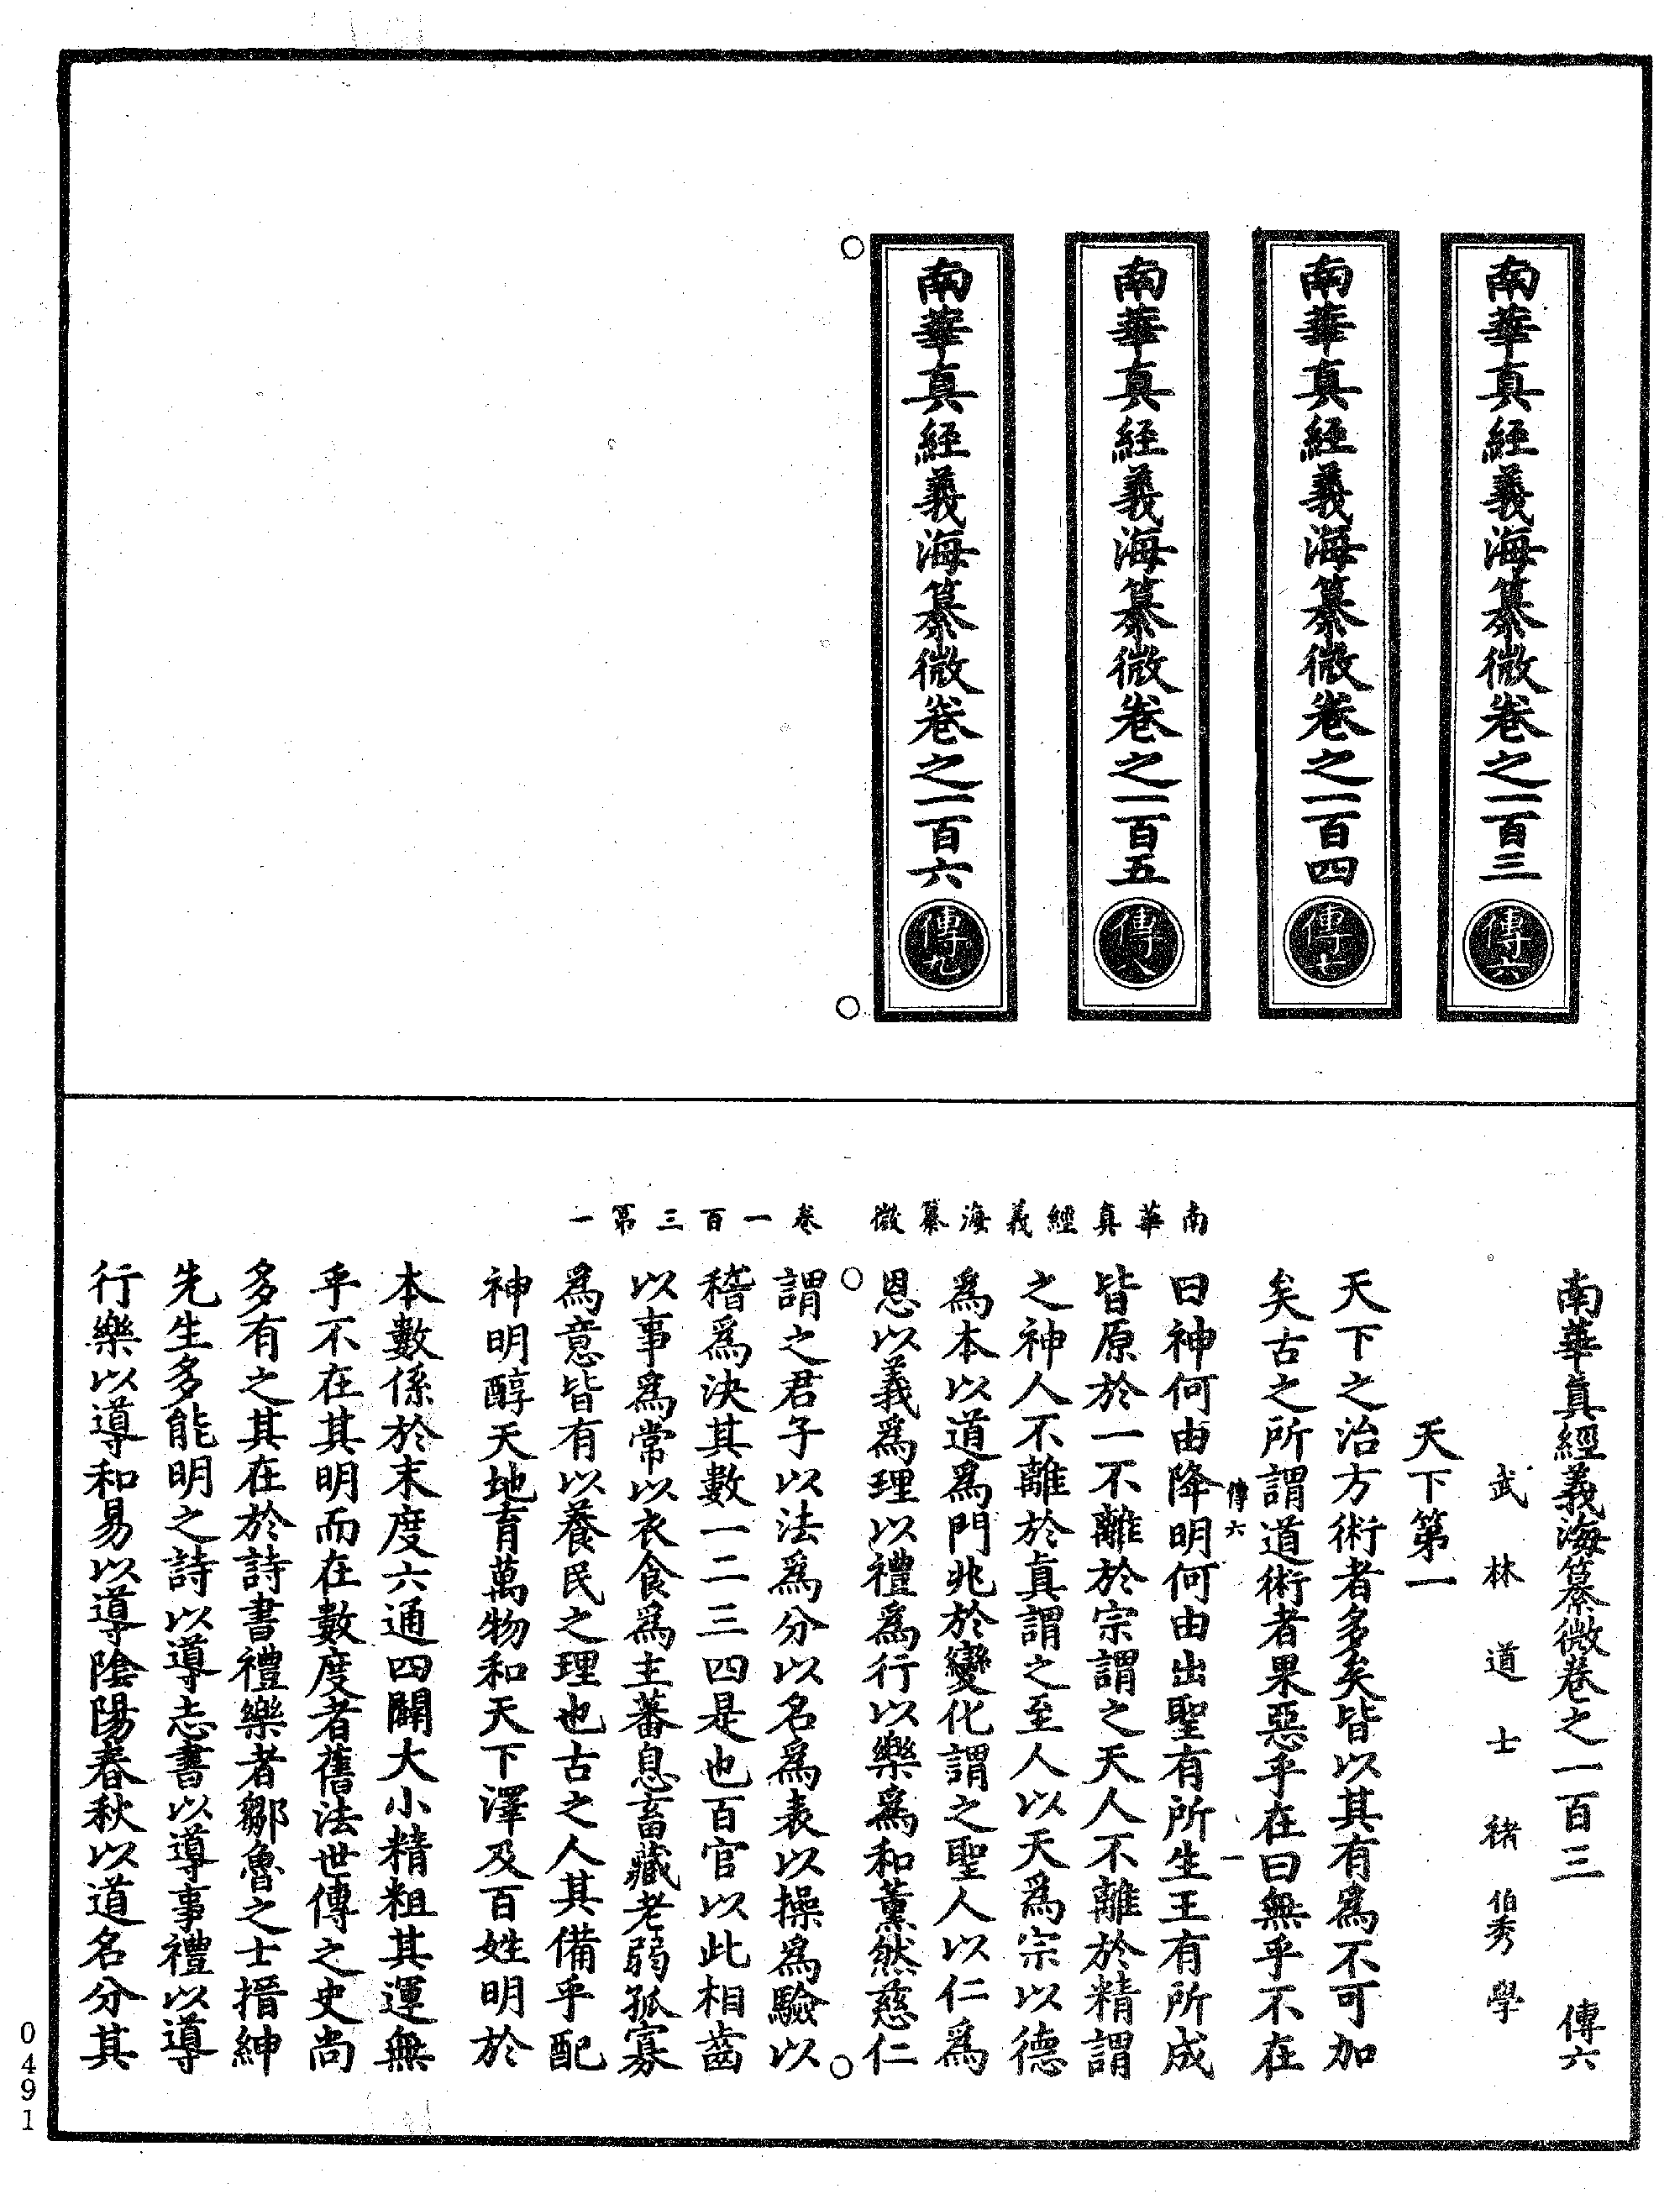 南華真經義海纂微卷之一百三
傳六
南華真經義海纂微卷之一百四
傳七
南華真經義海纂微卷之一百五
傳八
南華真經義海纂微卷之一百六
傳九
南華真經義海纂微 卷一百三第一
南華真經義海纂微卷之一百三 傳六
武林道士褚伯秀學
天下第一
天下之治方術者多矣皆以其有為不可加
矣古之所謂道術者果惡乎在曰無乎不在
傳六 一
曰神何由降明何由出聖有所生王有所成
皆原於一不離於宗謂之天人不離於精謂
之神人不離於真謂之至人以天為宗以德
為本以道為門兆於變化謂之聖人以仁為
恩以義為理以禮為行以樂為和薰然慈仁
謂之君子以法為分以名為表以操為驗以
稽為決其數一二三四是也百官以此相齒
以事為常以衣食為主蕃息畜藏老弱孤寡
為意皆有以養民之理也古之人其備乎配
神明醇天地育萬物和天下澤及百姓明於
本數係於末度六通四闢大小精粗其運無
乎不在其明而在數度者舊法世傳之史尚
多有之其在於詩書禮樂者鄒魯之士搢紳
先生多能明之詩以導志書以導事禮以導
行樂以導和易以導陰陽春秋以道名分其
0491